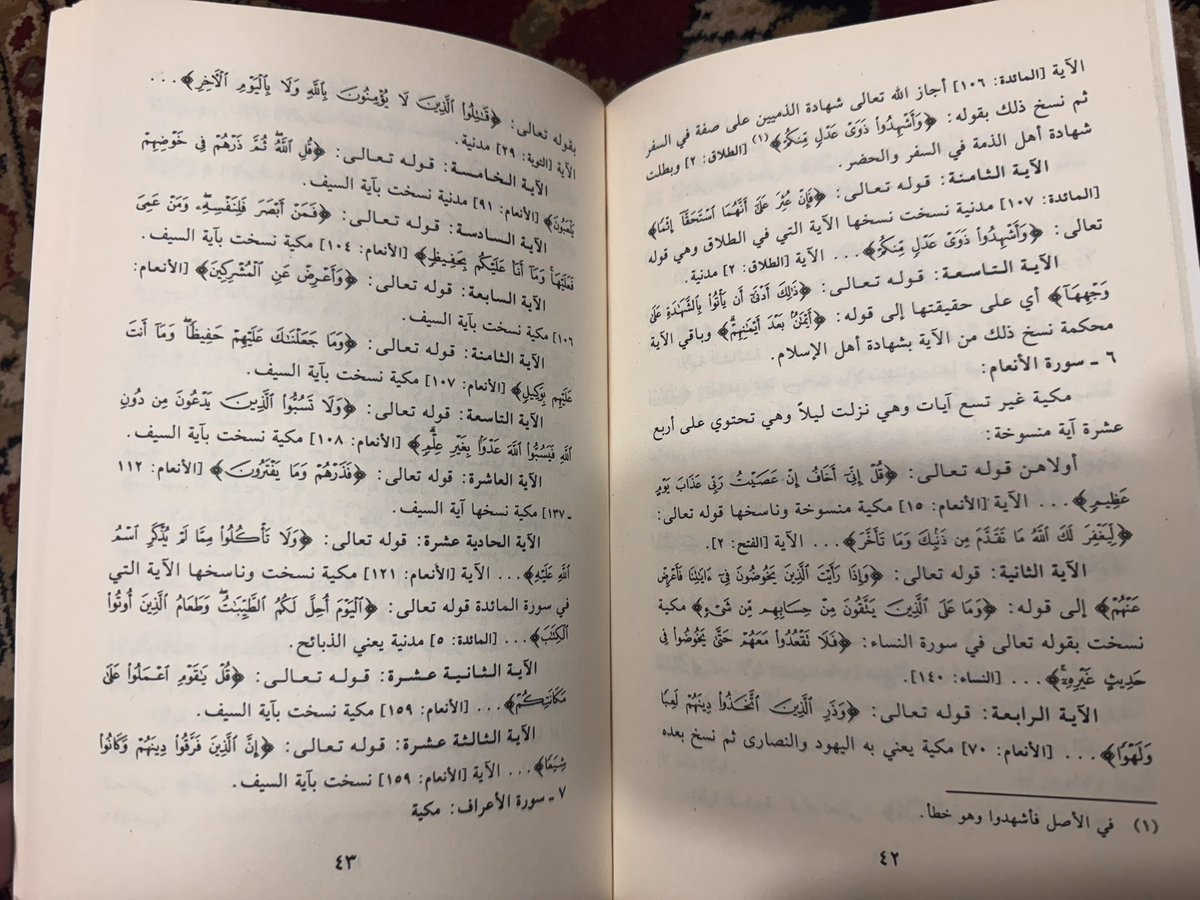 الآية [المائدة: ١٠٦] أجاز الله تعالى شهادة الذميين على صفة في السفر
ثم نسخ ذلك بقوله: ﴿وَأَشْهِدُوا ذَوَيْ عَدْلٍ مِّنكُمْ﴾(١) [الطلاق: ٢] وبطلت
شهادة أهل الذمة في السفر والحضر.
الآية الثامنة: قوله تعالى: ﴿فَإِنْ عُثِرَ عَلَىٰ أَنَّهُمَا اسْتَحَقَّا إِثْمًا﴾
[المائدة: ١٠٧] مدنية نسخت نسخها الآية التي في الطلاق وهي قوله
تعالى: ﴿وَأَشْهِدُوا ذَوَيْ عَدْلٍ مِّنكُمْ﴾... الآية [الطلاق: ٢] مدنية.
الآية التاسعة: قوله تعالى: ﴿ذَٰلِكَ أَدْنَىٰ أَن يَأْتُوا بِالشَّهَادَةِ عَلَىٰ
وَجْهِهَا﴾ أي على حقيقتها إلى قوله: ﴿أَيْمَانٌ بَعْدَ أَيْمَانِهِمْ﴾ وباقي الآية
محكمة نسخ ذلك من الآية بشهادة أهل الإسلام.
٦ ـ سورة الأنعام:
مكية غير تسع آيات وهي نزلت ليلاً وهي تحتوي على أربع
عشرة آية منسوخة:
أولاهن قوله تعالى: ﴿قُلْ إِنِّي أَخَافُ إِنْ عَصَيْتُ رَبِّي عَذَابَ يَوْمٍ
عَظِيمٍ﴾... الآية [الأنعام: ١٥] مكية منسوخة وناسخها قوله تعالى:
﴿لِيَغْفِرَ لَكَ اللَّهُ مَا تَقَدَّمَ مِن ذَنبِكَ وَمَا تَأَخَّرَ﴾... الآية [الفتح: ٢].
الآية الثانية: قوله تعالى: ﴿وَإِذَا رَأَيْتَ الَّذِينَ يَخُوضُونَ فِي آيَاتِنَا فَأَعْرِضْ
عَنْهُمْ﴾ إلى قوله: ﴿وَمَا عَلَى الَّذِينَ يَتَّقُونَ مِنْ حِسَابِهِم مِّن شَيْءٍ﴾ مكية
نسخت بقوله تعالى في سورة النساء: ﴿فَلَا تَقْعُدُوا مَعَهُمْ حَتَّىٰ يَخُوضُوا فِي
حَدِيثٍ غَيْرِهِ﴾... [النساء: ١٤٠].
الآية الرابعة: قوله تعالى: ﴿وَذَرِ الَّذِينَ اتَّخَذُوا دِينَهُمْ لَعِبًا
وَلَهْوًا﴾... [الأنعام: ٧٠] مكية يعني به اليهود والنصارى ثم نسخ بعده
(١) في الأصل فأشهدوا وهو خطأ.
٤٢
بقوله تعالى: ﴿قَاتِلُوا الَّذِينَ لَا يُؤْمِنُونَ بِاللَّهِ وَلَا بِالْيَوْمِ الْآخِرِ﴾...
الآية [التوبة: ٢٩] مدنية.
الآية الخامسة: قوله تعالى: ﴿قُلِ اللَّهُ ثُمَّ ذَرْهُمْ فِي خَوْضِهِمْ
يَلْعَبُونَ﴾ [الأنعام: ٩١] مدنية نسخت بآية السيف.
الآية السادسة: قوله تعالى: ﴿فَمَنْ أَبْصَرَ فَلِنَفْسِهِ وَمَنْ عَمِيَ
فَعَلَيْهَا وَمَا أَنَا عَلَيْكُم بِحَفِيظٍ﴾ [الأنعام: ١٠٤] مكية نسخت بآية السيف.
الآية السابعة: قوله تعالى: ﴿وَأَعْرِضْ عَنِ الْمُشْرِكِينَ﴾ [الأنعام:
١٠٦] مكية نسخت بآية السيف.
الآية الثامنة: قوله تعالى: ﴿وَمَا جَعَلْنَاكَ عَلَيْهِمْ حَفِيظًا وَمَا أَنتَ
عَلَيْهِم بِوَكِيلٍ﴾ [الأنعام: ١٠٧] مكية نسخت بآية السيف.
الآية التاسعة: قوله تعالى: ﴿وَلَا تَسُبُّوا الَّذِينَ يَدْعُونَ مِن دُونِ
اللَّهِ فَيَسُبُّوا اللَّهَ عَدْوًا بِغَيْرِ عِلْمٍ﴾ [الأنعام: ١٠٨] مكية نسخت بآية السيف.
الآية العاشرة: قوله تعالى: ﴿فَذَرْهُمْ وَمَا يَفْتَرُونَ﴾ [الأنعام: ١١٢
ـ ١٣٧] مكية نسخها آية السيف.
الآية الحادية عشرة: قوله تعالى: ﴿وَلَا تَأْكُلُوا مِمَّا لَمْ يُذْكَرِ اسْمُ
اللَّهِ عَلَيْهِ﴾... الآية [الأنعام: ١٢١] مكية نسخت وناسخها الآية التي
في سورة المائدة قوله تعالى: ﴿الْيَوْمَ أُحِلَّ لَكُمُ الطَّيِّبَاتُ وَطَعَامُ الَّذِينَ أُوتُوا
الْكِتَابَ﴾... [المائدة: ٥] مدنية يعني الذبائح.
الآية الثانية عشرة: قوله تعالى: ﴿قُلْ يَا قَوْمِ اعْمَلُوا عَلَىٰ
مَكَانَتِكُمْ﴾... [الأنعام: ١٥٩] مكية نسخت بآية السيف.
الآية الثالثة عشرة: قوله تعالى: ﴿إِنَّ الَّذِينَ فَرَّقُوا دِينَهُمْ وَكَانُوا
شِيَعًا﴾... الآية [الأنعام: ١٥٩] نسخت بآية السيف.
٧ ـ سورة الأعراف: مكية
٤٣